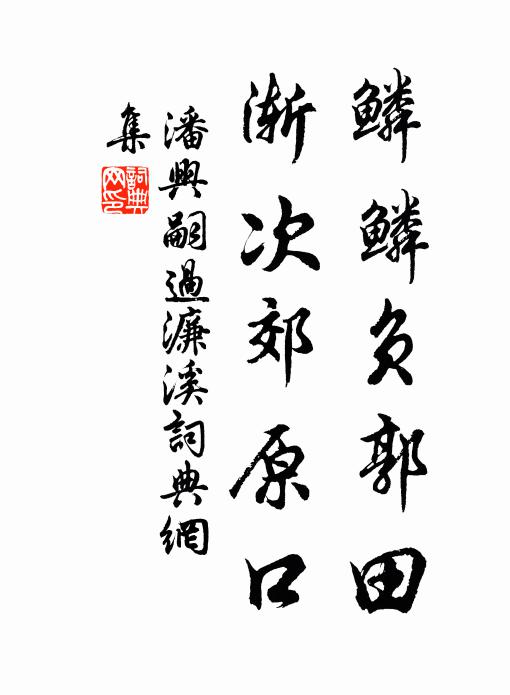 鱗鱗負郭田
漸次郊原口
潘興嗣過濂溪詞典網
集
詞典網印